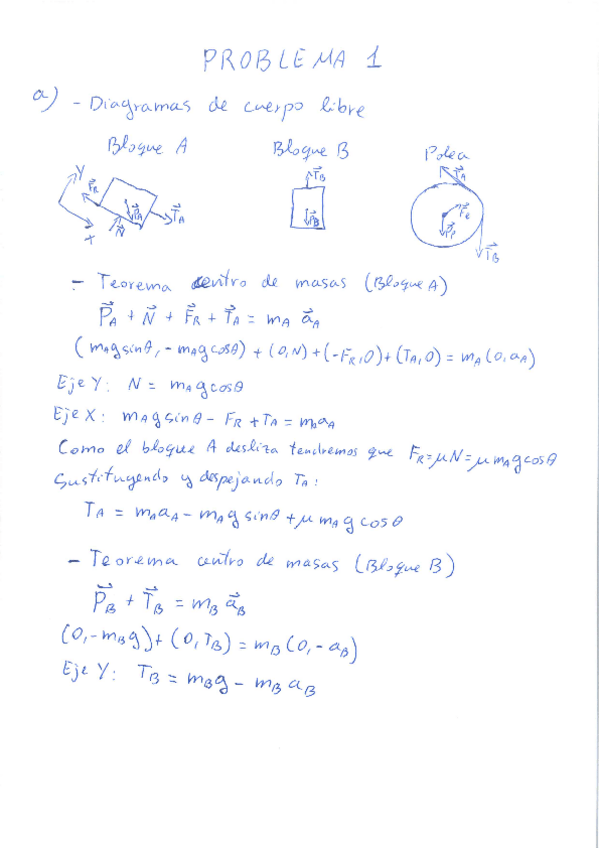 PROBLEMA 1
a) - Diagramas de cuerpo libre
Bloque A Bloque B Polea
Y X F⃗R P⃗A N⃗ T⃗A
T⃗B P⃗B
T⃗A F⃗E P⃗P T⃗B
- Teorema centro de masas (Bloque A)
P⃗A + N⃗ + F⃗R + T⃗A = mA a⃗A
(mAg sinθ, - mAg cosθ) + (0, N) + (-FR, 0) + (TA, 0) = mA (0, aA)
Eje Y: N = mAg cosθ
Eje X: mAg sinθ - FR + TA = mAaA
Como el bloque A desliza tendremos que FR = μN = μ mAg cosθ
Sustituyendo y despejando TA:
TA = mAaA - mAg sinθ + μ mAg cosθ
- Teorema centro de masas (Bloque B)
P⃗B + T⃗B = mB a⃗B
(0, -mBg) + (0, TB) = mB (0, -aB)
Eje Y: TB = mBg - mB aB